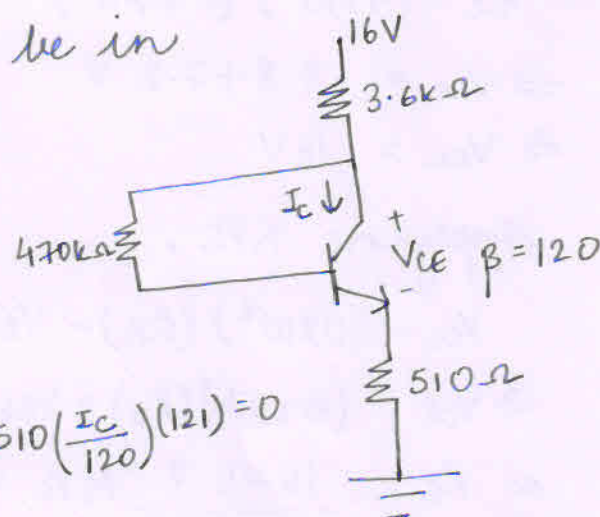 be in
16V
3.6kΩ
Ic ↓
+
470kΩ
VCE β = 120
-
510Ω
510(Ic/120)(121) = 0